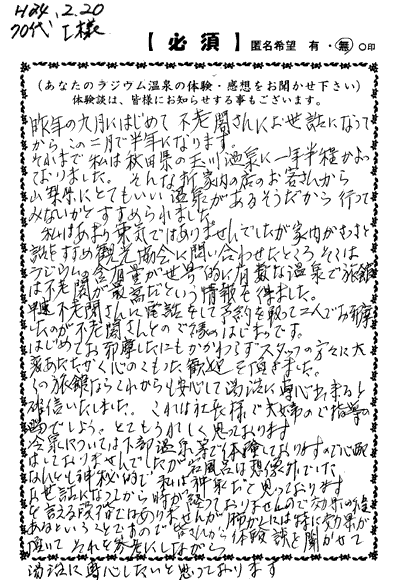 H24.2.20
70代 I様
【必須】 匿名希望 有・無 ○印
(あなたのラジウム温泉の体験・感想をお聞かせ下さい)
体験談は、皆様にお知らせする事もございます。
昨年の九月にはじめて不老閣さんにお世話になって
から、この二月で半年になります。
それまで私は秋田県の玉川温泉に一年半程かよっ
ておりました。そんな折家内の店のお客さんから
山梨県にとてもいい温泉があるそうだから行って
みないかとすすめられました。
私はあまり乗気ではありませんでしたが家内がもっと
話をすすめ観光協会に問い合わせたところ、そこは
ラジウムの含有量が世界的に有数な温泉で旅館
は不老閣が最高だという情報を得ました。
早速不老閣さんに電話をして予約を取って二人でお邪魔
したのが不老閣さんとのご縁のはじまりです。
はじめてお邪魔したにもかかわらずスタッフの方々に大
変あたたかく心のこもった歓迎を頂きました。
この旅館ならこれからも安心して湯治に専心出来ると
確信いたしました。これは社長様ご夫妻のご指導の
賜でしょう。とてもうれしく思っております
冷泉については下部温泉等で体験しておりますので心配
はしておりませんでしたが岩風呂は想像外でした。
なんとも神秘的で私は神泉だと思っております
お世話になってから時が浅うおりませんので効果の程
を言える段階ではありませんが、
あるということですので皆さんから体験談を聞かせて
頂いてそれを参考にしながら
湯治に専心したいと思っております